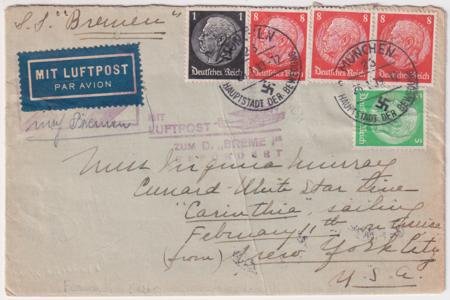 S.S. "Bremen"
MIT LUFTPOST
PAR AVION
1 1
8 8
8
8
Deutsches Reich
Deutsches Reich
Deutsches Reich
Deutsches Reich
MÜNCHEN
HAUPTSTADT DER BEWEGUNG
HAUPTSTADT DER BEWEGUNG
5
MIT
LUFTPOST
ZUM D. "BREME
BEFÖRDERT
Bremen
Miss Virginia Murray
Cunard-White Star Line
"Carinthia", sailing
February 11th on cruise
(from) New York City
U.S.A.